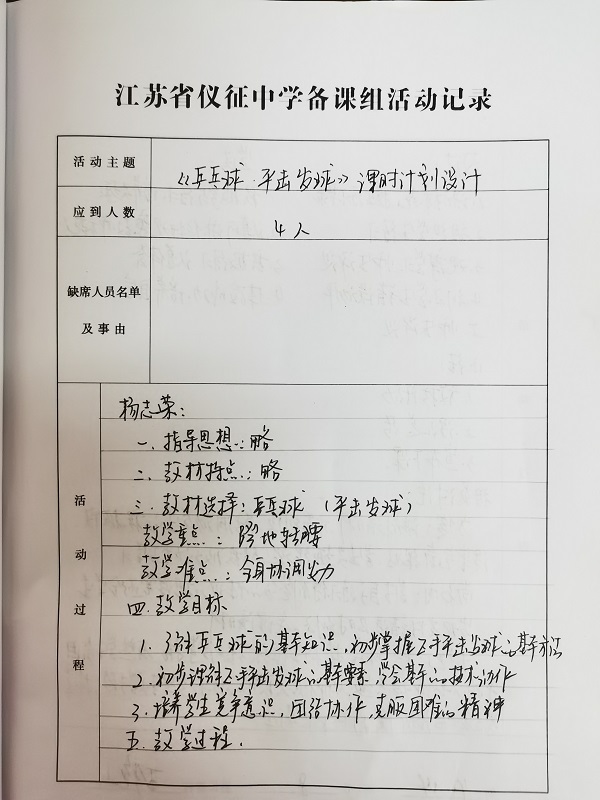 江苏省仪征中学备课组活动记录
活动主题 《乒乓球·平击发球》课时计划设计
应到人数 4人
缺席人员名单
及事由
活动过程
杨志荣:
一、指导思想:略
二、教材特点:略
三、教材选择:乒乓球(平击发球)
教学重点:蹬地转腰
教学难点:全身协调发力
四、教学目标
1. 了解乒乓球的基本知识,初步掌握正手平击发球的基本
2. 初步理解正手平击发球的基本要素,学会基本的技术动作
3. 培养学生竞争意识,团结协作,克服困难的精神
五、教学过程.